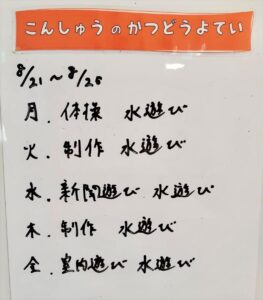 こんしゅう の かつどうよてい
8/21〜8/25
月．体操 水遊び
火．制作 水遊び
水．新聞遊び 水遊び
木．制作 水遊び
金．室内遊び 水遊び